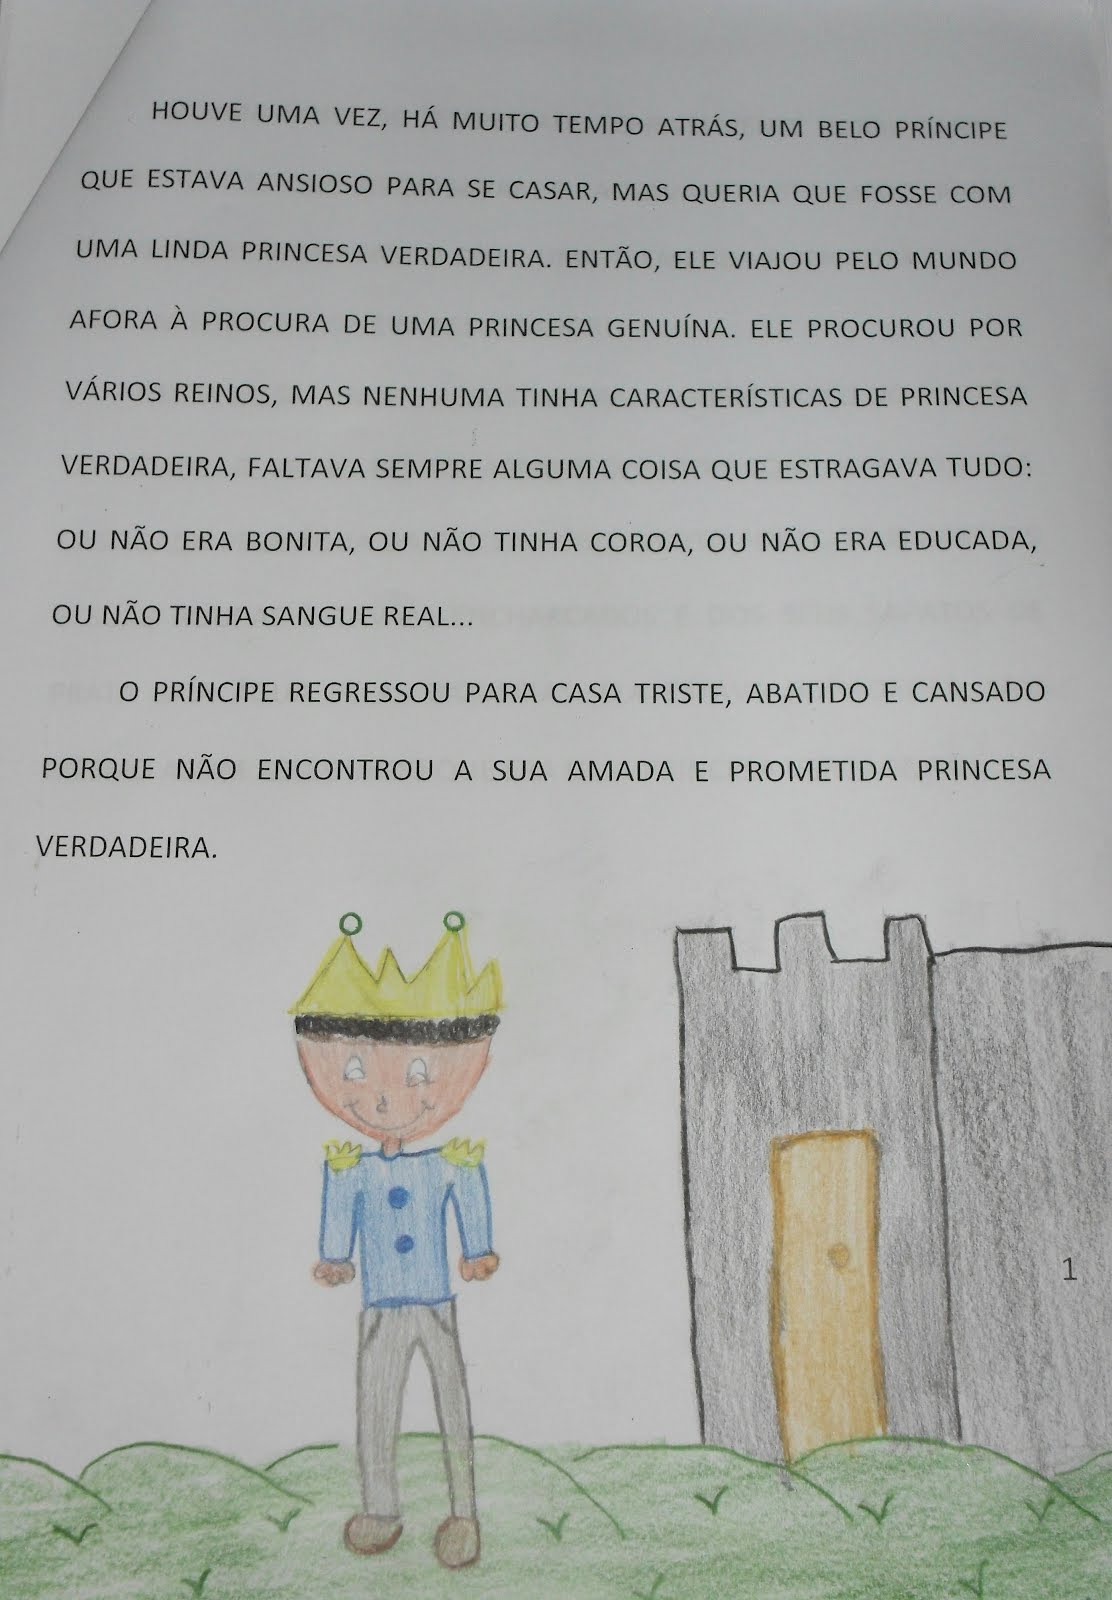 HOUVE UMA VEZ, HÁ MUITO TEMPO ATRÁS, UM BELO PRÍNCIPE
QUE ESTAVA ANSIOSO PARA SE CASAR, MAS QUERIA QUE FOSSE COM
UMA LINDA PRINCESA VERDADEIRA. ENTÃO, ELE VIAJOU PELO MUNDO
AFORA À PROCURA DE UMA PRINCESA GENUÍNA. ELE PROCUROU POR
VÁRIOS REINOS, MAS NENHUMA TINHA CARACTERÍSTICAS DE PRINCESA
VERDADEIRA, FALTAVA SEMPRE ALGUMA COISA QUE ESTRAGAVA TUDO:
OU NÃO ERA BONITA, OU NÃO TINHA COROA, OU NÃO ERA EDUCADA,
OU NÃO TINHA SANGUE REAL...
O PRÍNCIPE REGRESSOU PARA CASA TRISTE, ABATIDO E CANSADO
PORQUE NÃO ENCONTROU A SUA AMADA E PROMETIDA PRINCESA
VERDADEIRA.
1